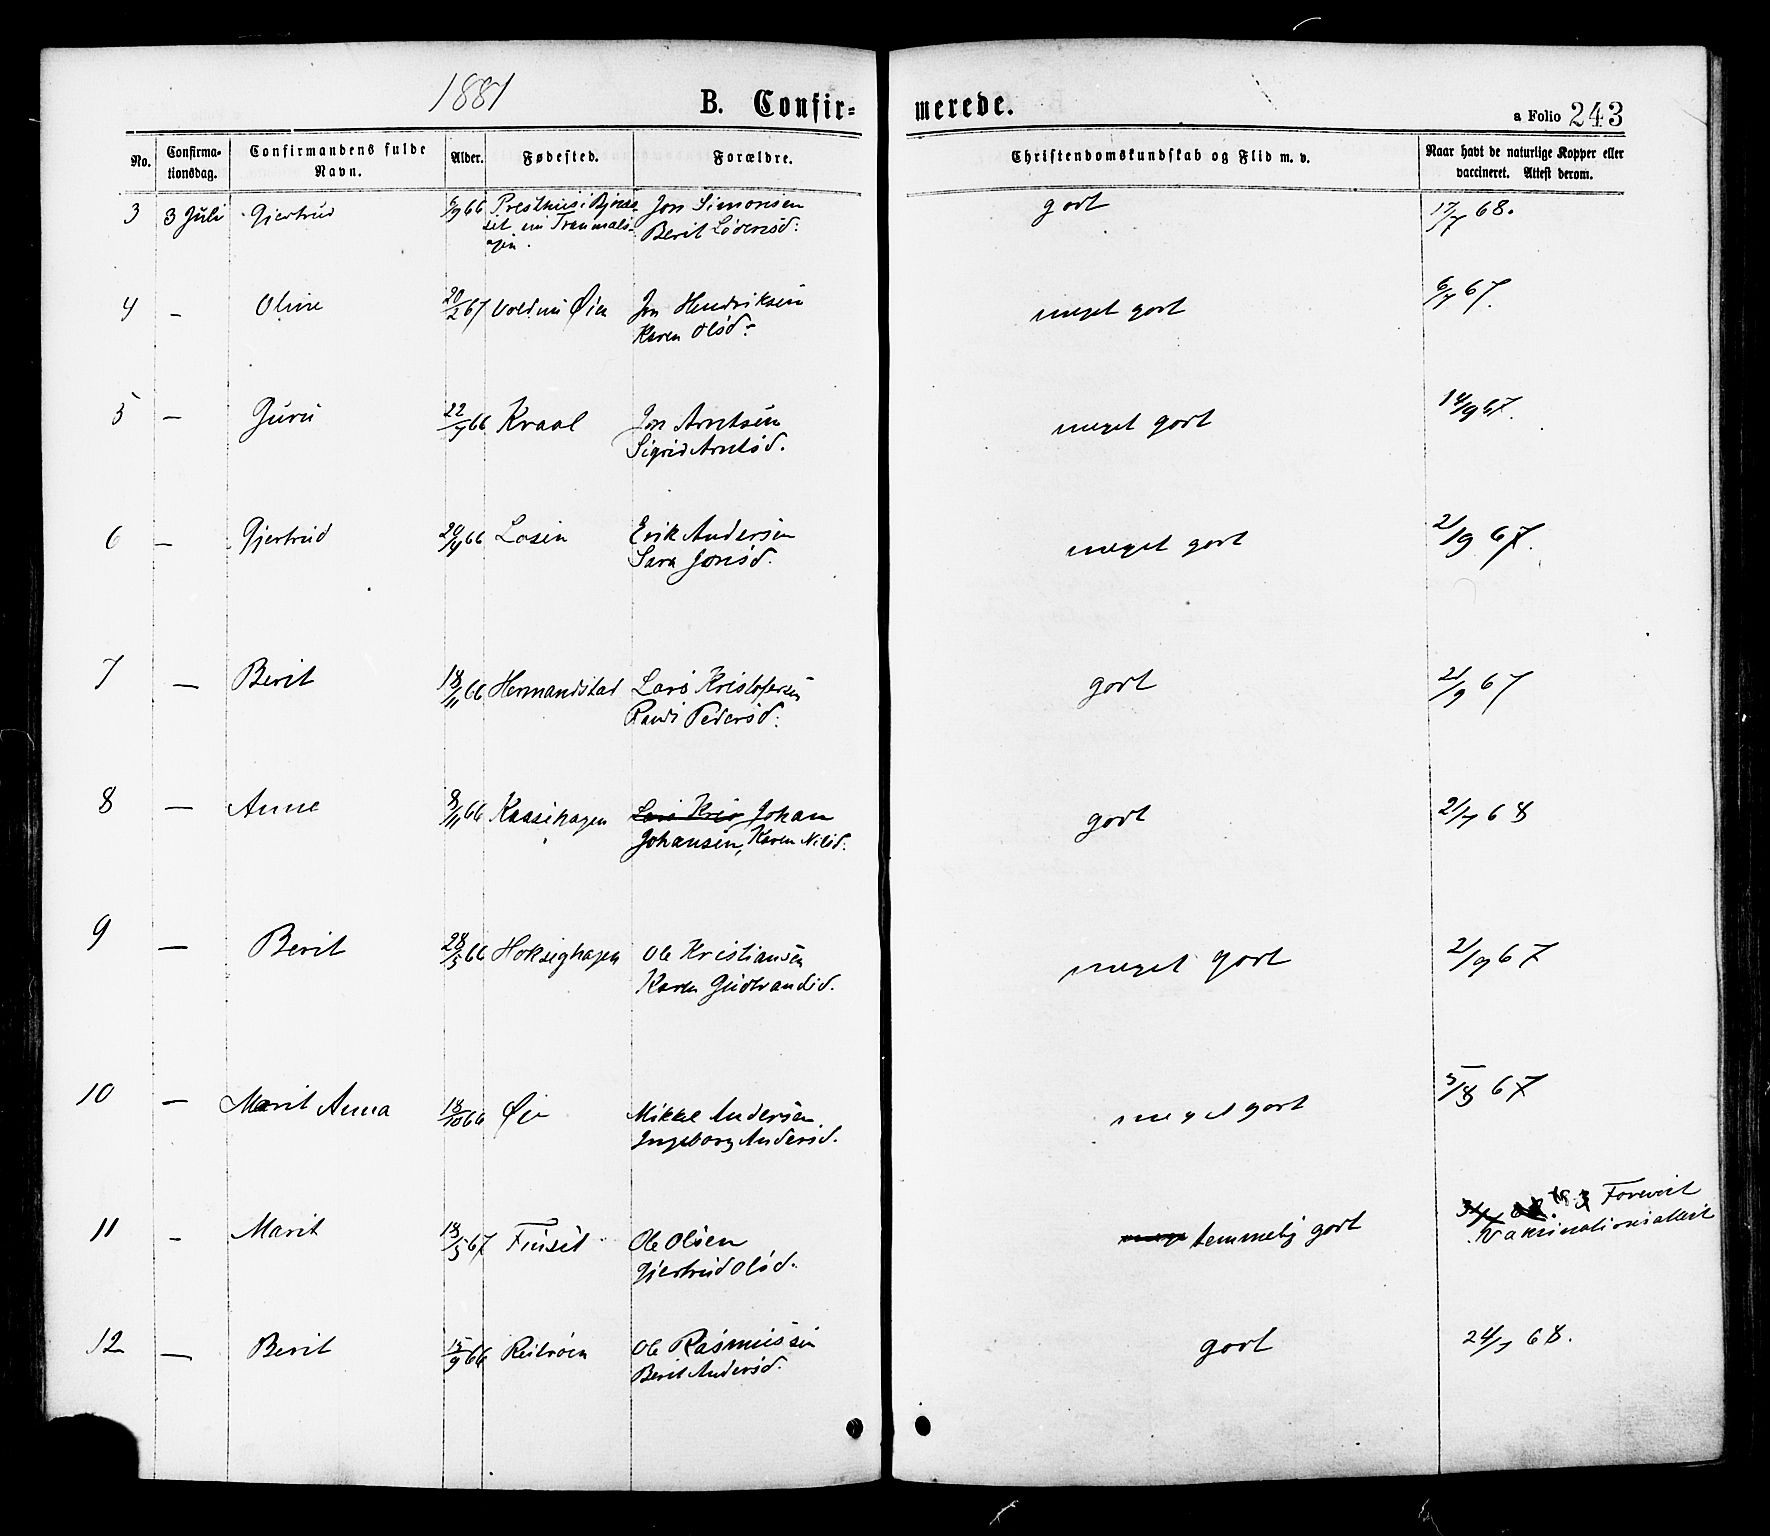 1881 B. Confir- merede. a Folio 243
No. Confirma- tionsdag. Confirmandens fulde Navn. Alder. Fødested. Forældre. Christendomskundskab og Flid m. v. Naar havt de naturlige Kopper eller vaccineret. Attest derom.
3 3 Juli Gjertrud 6/9 66 Jon Simonsen godt 17/7 68.
Berit
4 - Oline 20/2 67 Øien Jon Hendriksen meget godt 6/7 67.
Karen Olsd.
5 - Guru 22/7 66 Kraal Jon Arntsen meget godt 14/9 67.
Sigrid Arntsd.
6 - Gjertrud 20/4 66 Losen Erik Andersen meget godt 2/9 67.
Sara Jonsd.
7 - Berit 18/11 66 Hermandstad Lars Kristofersen godt 2/9 67
Randi Pedersd.
8 - Anne 9/11 66 Kaasehagen Lars Kris Johan godt 2/7 68
Johansen, Karen Nilsd.
9 - Berit 28/5 66 Hoksnghagen Ole Kristiansen meget godt 2/9 67
Karen Gudbrandsd.
10 - Marit Anna 18/10 66 Øie Mikkel Andersen meget godt 5/8 67
Ingeborg Andersd.
11 - Marit 18/5 67 Finset Ole Olsen temmelig godt Forevist
Gjertrud Olsd. Vaksinationsattest
12 - Berit 15/9 66 Reitrøen Ole Rasmussen godt 24/7 68.
Berit Andersd.